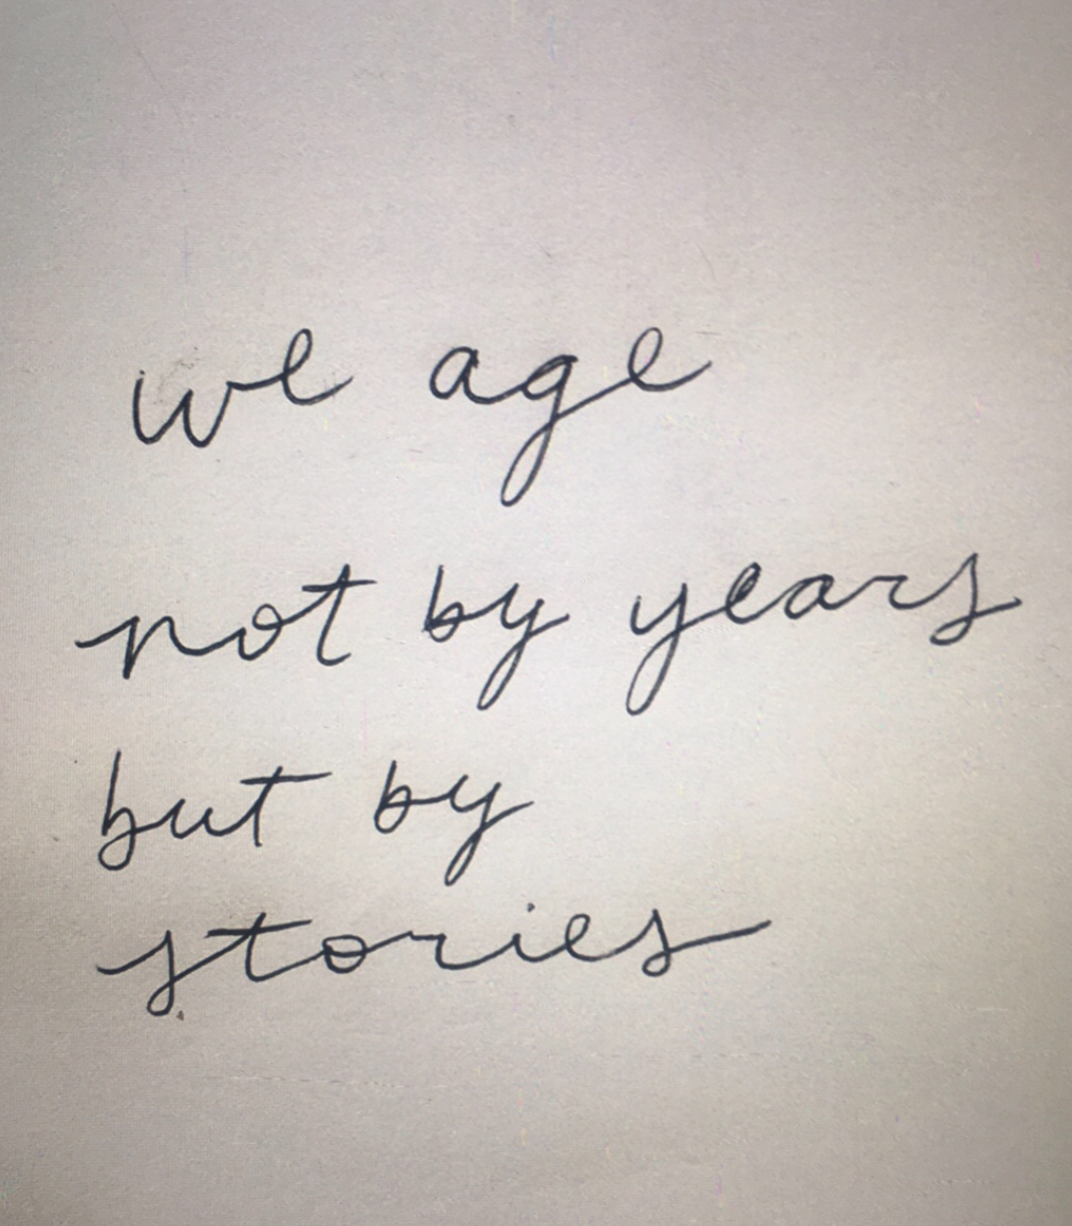 we age
not by years
but by
stories